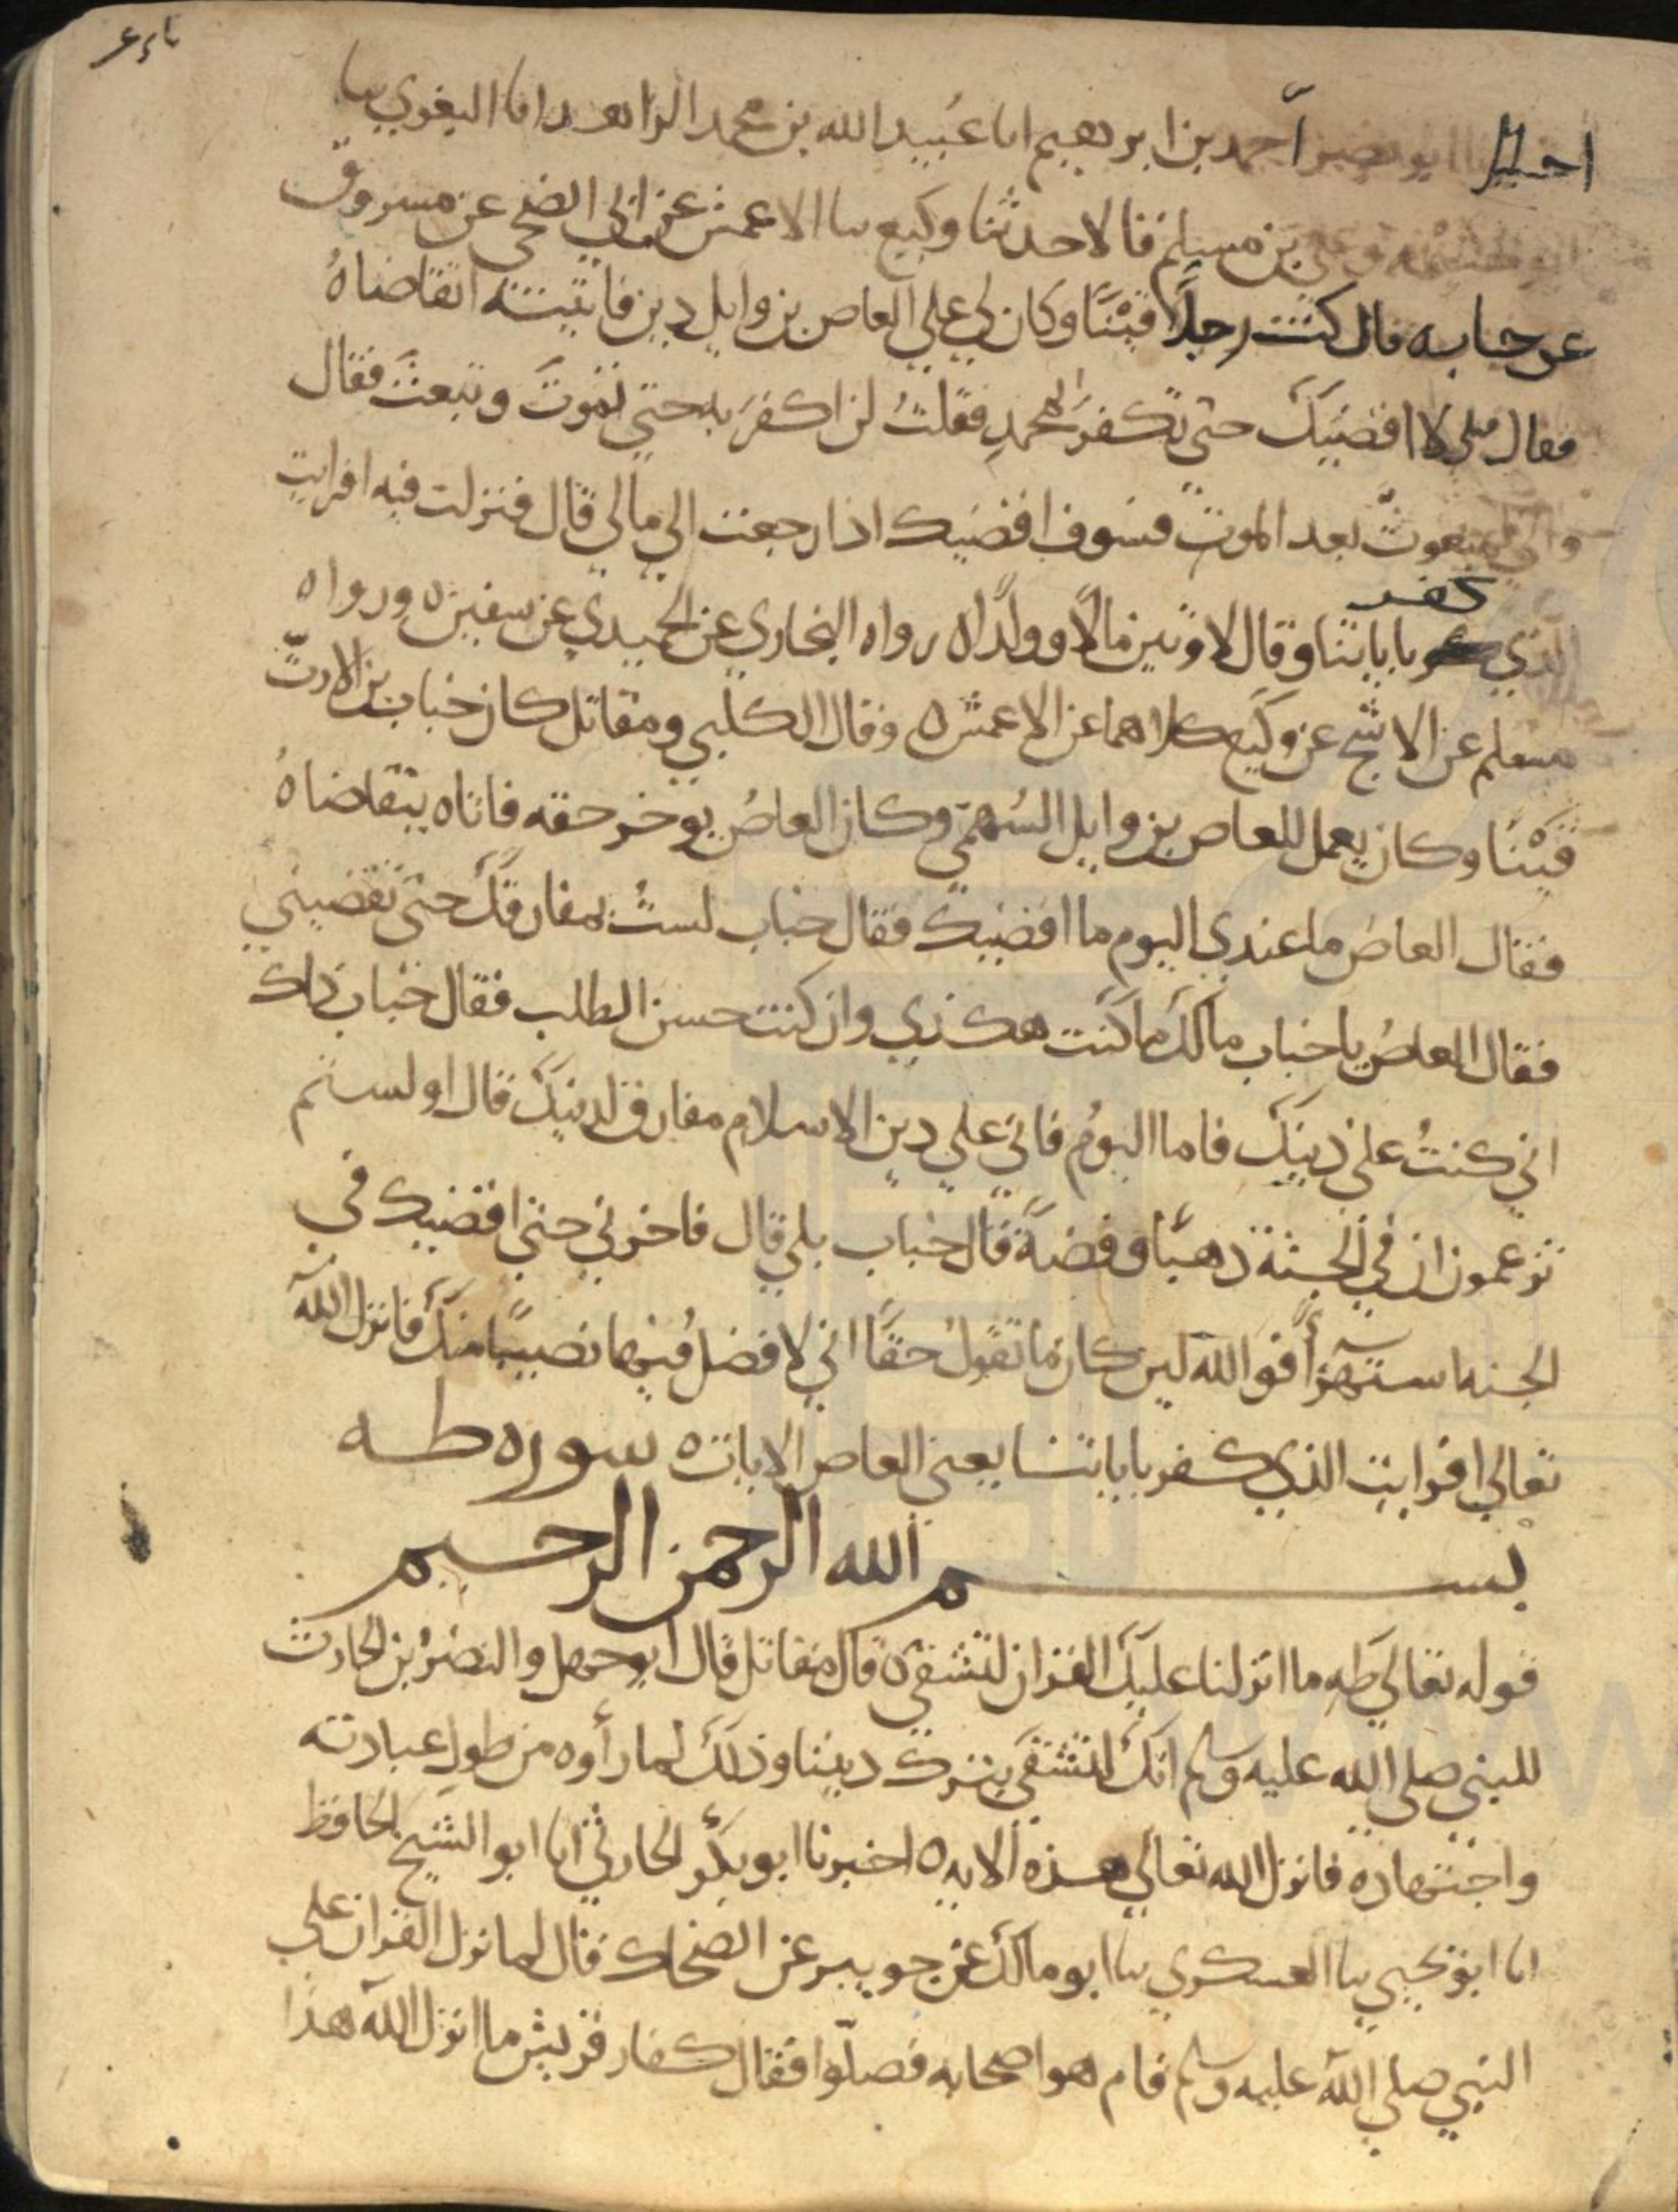 اخبرنا ابو نصر احمد بن ابرهيم انا عبيد الله بن محمد الزاهد انا البغوي سا
ابو خيثمه وعلي بن مسلم قالا حدثنا وكيع سا الاعمش عن ابي الضحى عن مسروق
عن خباب قال كنت رجلًا قَيْنًا وكان لي علي العاص بن وايل دين فاتيته اتقاضاهُ
فقال لي لا اقضيكَ حتى تكفرَ بمحمدٍ فقلتُ لن اكفرَ به حتي تموتَ وتبعثَ فقال
واني لمبعوثٌ بعد الموت فسوف اقضيك اذا رجعت الي مالي قال فنزلت فيه افرايت
كفر
الذي باياتنا وقال لاوتين مالًا وولدًا ه رواه البخاري عن الحميدي عن سفين ه ورواه
مسلم عن الاشج عن وكيع كلاهما عن الاعمش ه وقال الكلبي ومقاتل كان خباب بن الارتّ
قَيْنًا وكان يعمل للعاص بن وايل السهمي وكان العاصُ يوخر حقه فاتاه يتقاضاهُ
فقال العاصُ ما عندي اليوم ما اقضيك فقال خباب لستُ بمفارقكَ حتى تقضيني
فقال العاصُ يا خباب مالَكَ ما كنت هكذي وان كنت حسن الطلب فقال خباب ذاك
اني كنتُ على دينكَ فاما اليومُ فاني علي دين الاسلام مفارق لدينكَ قال اولستم
تزعمون ان في الجنة ذهبًا وفضةً قال خباب بلي قال فاخرني حتي اقضيك في
الجنه استهزأً فوالله لين كان ما تقولُ حقًا اني لافضلُ فيها نصيبًا منكَ فانزل الله
تعالي افرايت الذي كفر باياتنا يعني العاص الايات ه سوره طه
بسم الله الرحمن الرحيم
قوله تعالي طه ما انزلنا عليكَ القران لتشقي ه قال مقاتل قال ابو جهل والنضرُ بن الحارث
للنبي صلي الله عليه وسلم انكَ لتشقَي بترك ديننا وذلكَ لما رأوه من طول عبادته
واجتهاده فانزل الله تعالي هذه الايه ه اخبرنا ابو بكر الحارثي انا ابو الشيخ الحافظ
انا ابو يحيي سا العسكري سا ابو مالك عن جويبر عن الضحاك قال لما نزل القران علي
النبي صلي الله عليه وسلم قام هو اصحابه فصلّوا فقال كفار قريش ما انزل الله هذا